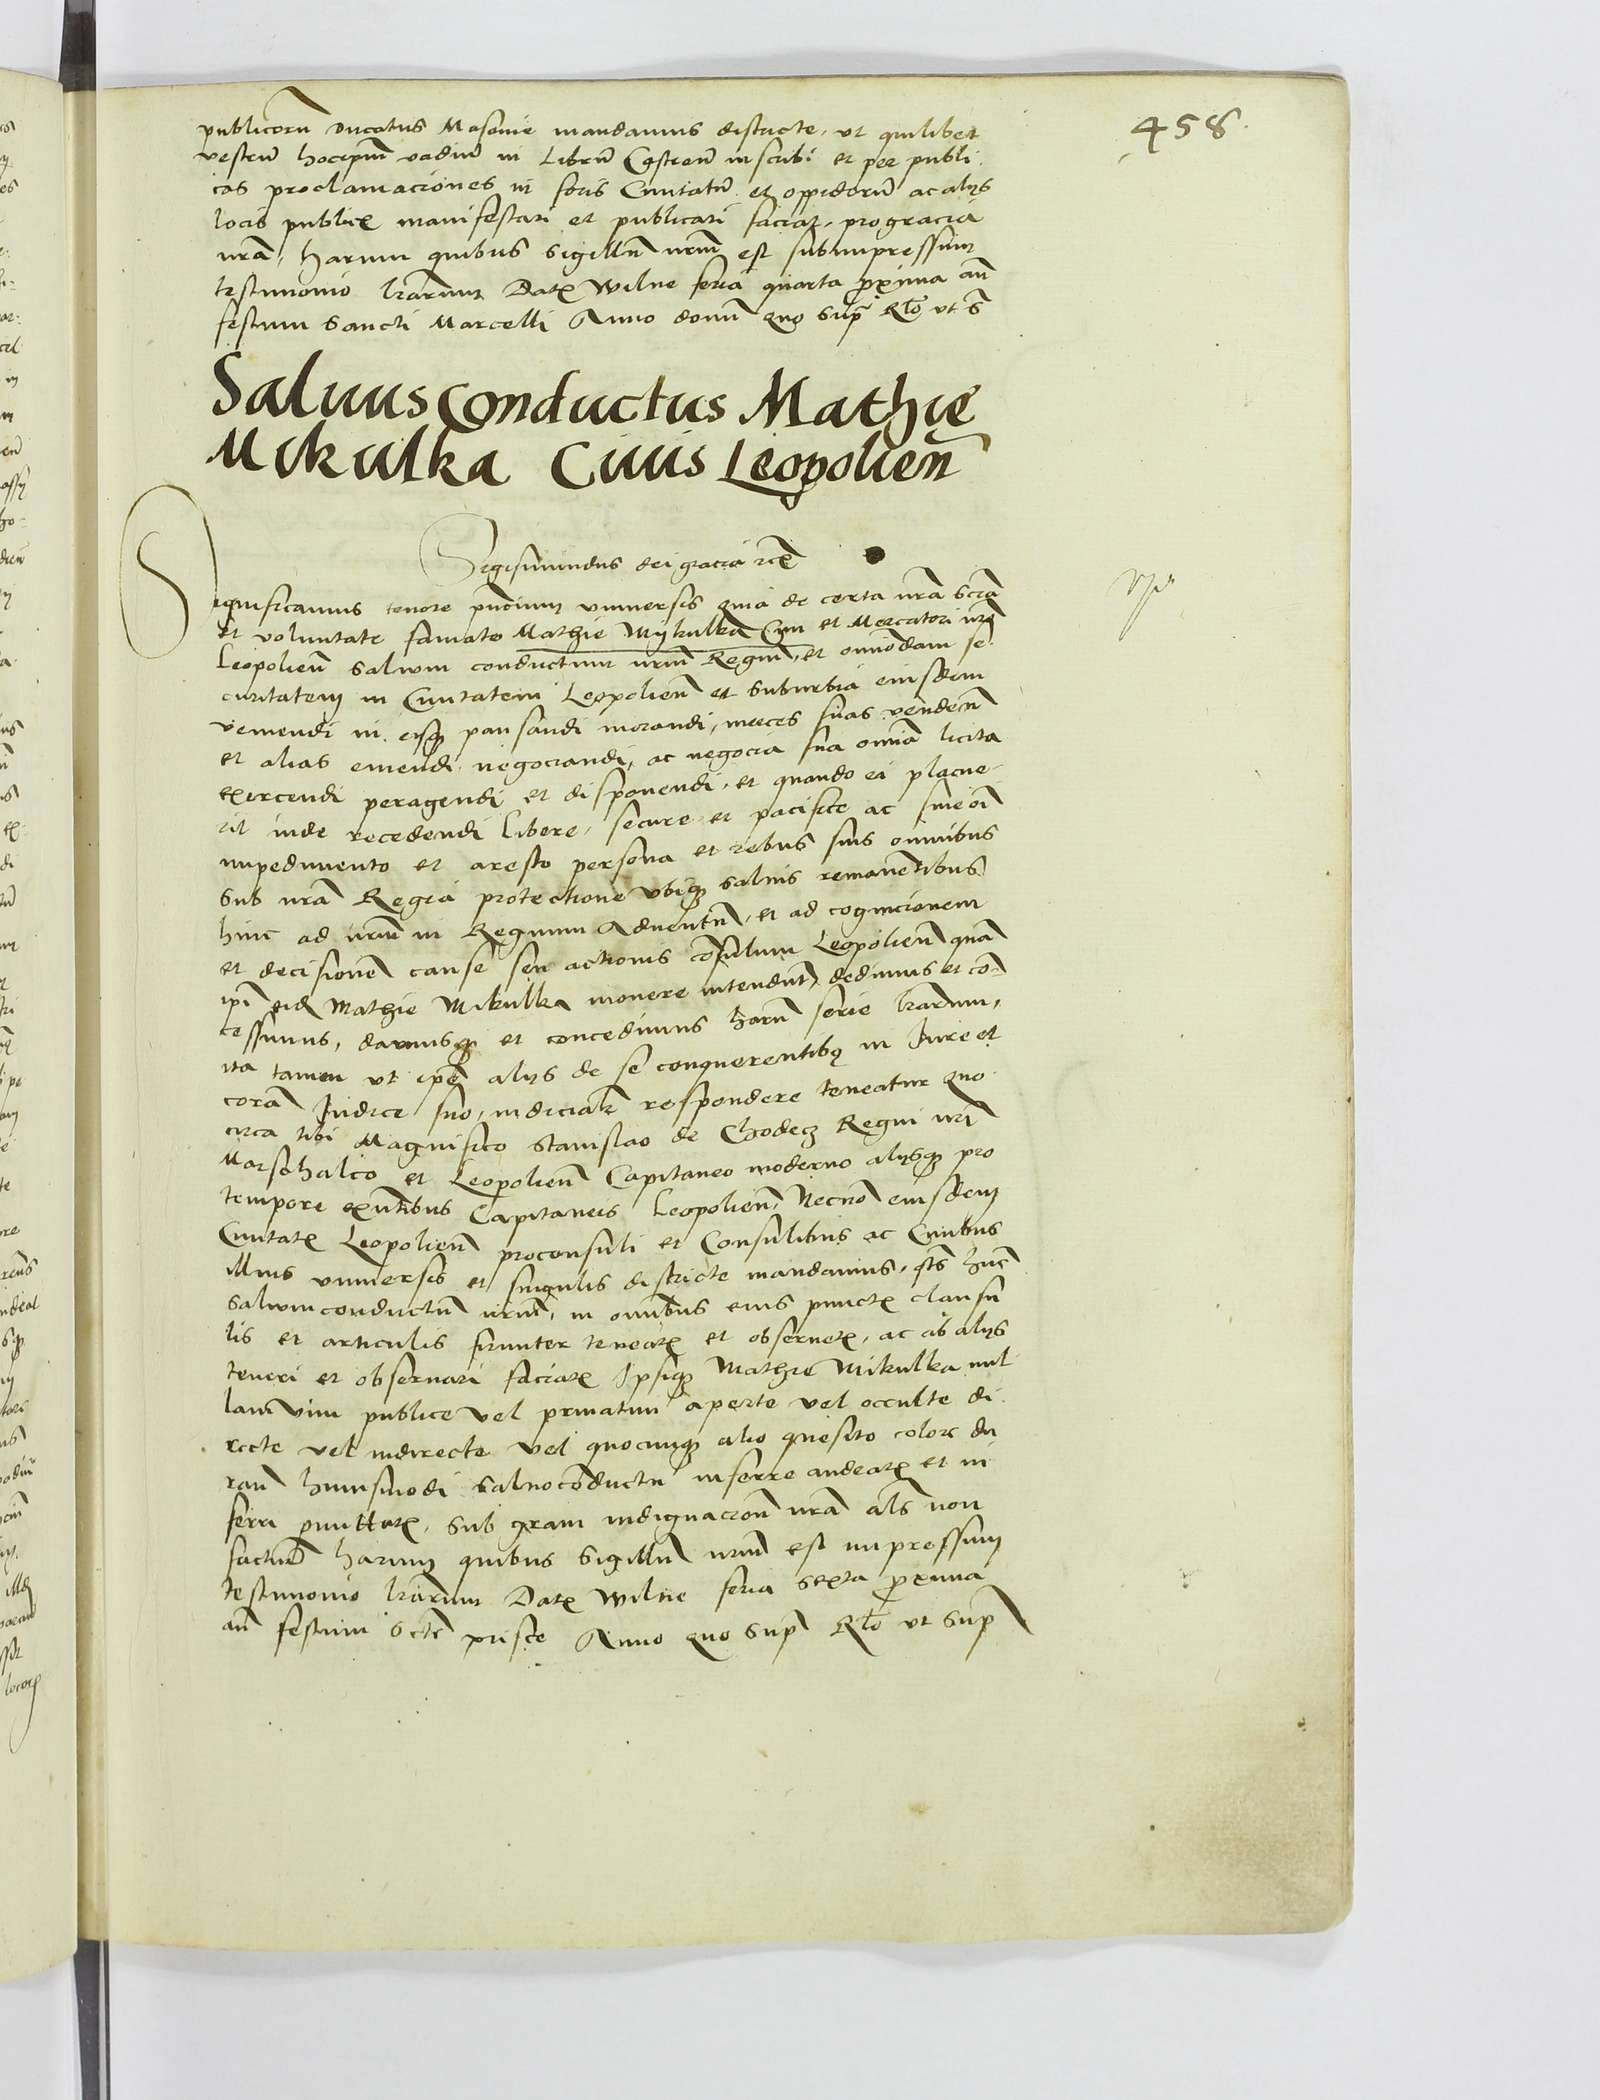 458.
publicorũ Ducatus Masovie mandamus districte, ut quilibet
vestrum hocipm̃ vadiũ in Librũ Castreñ inscribi et per publi-
cas proclamaciones in foris Civitatũ et oppidorũ ac alijs
locis publicꝭ manifestari et publicari faciat, pro gracia
nr̃a, harum quibus Sigillũ nrũm est subimpressum
testimonio lr̃arum Datꝭ Wilne feria quarta ꝓxima añ
festum Sancti Marcelli Anno domĩ quo supr̃ Rl̃o ut S̃
Saluus Conductus Mathię
Mikulka Ciuis Leopolieñ
Sigismundus dei gracia rcꝭ
Significamus tenore pñcium vniuersis quia de certa nr̃a sciã
et voluntate famato Mathie Mykulka Ciui et Mercatori nr̃o
Leopolieñ saluum conductum nrũm Regiũm, et omĩodam se-
curitatem in Ciuitatem Leopolieñ et suburbia eiusdem
veniendi in eisqꝫ pausandi morandi, merces suas vendeñ
et alias emendi negociandi, ac negocia sua omĩa licita
exercendi peragendi et disponendi, et quando ei placue-
rit inde recedendi libere, secure et pacifice ac sine oĩ
impedimento et aresto persona et rebus suis omnibus
sub nr̃a Regia protectione ubiqꝫ saluis remanẽtibus
hinc ad nrũm in Regnum Aduentũ, et ad cognicionem
et decisionẽ cause seu actionis cõsulum Leopolieñ quã
ipĩ eid̃ Mathie Mikulka mouere intendũt, dedimus et con-
cessimus, damusqꝫ et concedimus harũ serie lr̃arum,
ita tamen ut ipẽ alijs de se conquerentibꝰ in Iure et
corã Iudice suo, iudicialr̃ respondere teneatur Quo
circa tibi Magnifico Stanislao de Chodecz Regni nr̃i
Marschalco et Leopolieñ Capitaneo moderno alijsqꝫ pro
tempore exñtibus Capitaneis Leopolieñ, Necnõ eiusdem
Ciuitatꝭ Leopolieñ proconsuli et Consulibus ac Ciuibus
illius vniuersis et singulis districte mandamus, qts̃ hũc
saluumconductũ nrũm, in omĩbus eius punctꝭ clausu
lis et articulis firmiter teneatꝭ et obseruetꝭ, ac ab alijs
teneri et obseruari faciatꝭ Ipsiqꝫ Mathie Mikulka nul
lam vim publice vel priuatim aperte vel occulte di-
recte vel indirecte vel quocunqꝫ alio quesito colore du
rañ huiusmodi saluocõductu inferre audeatꝭ et in
ferri ꝑmittatꝭ, sub gram̃ indignacioñ nr̃a als̃ non
facturi harum quibus Sigillũ nrũm est impressum
testimonio lr̃arum Datꝭ Wilne feria sexta ꝓxima
añ festum Sctẽ prisce Anno quo supr̃ Rl̃o ut supr̃